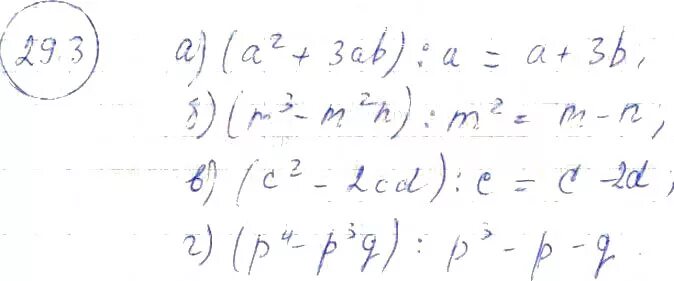 29.3
а) (a² + 3ab) : a = a + 3b;
б) (m³ - m²n) : m² = m - n;
в) (c² - 2cd) : c = c - 2d;
г) (p⁴ - p³q) : p³ - p - q